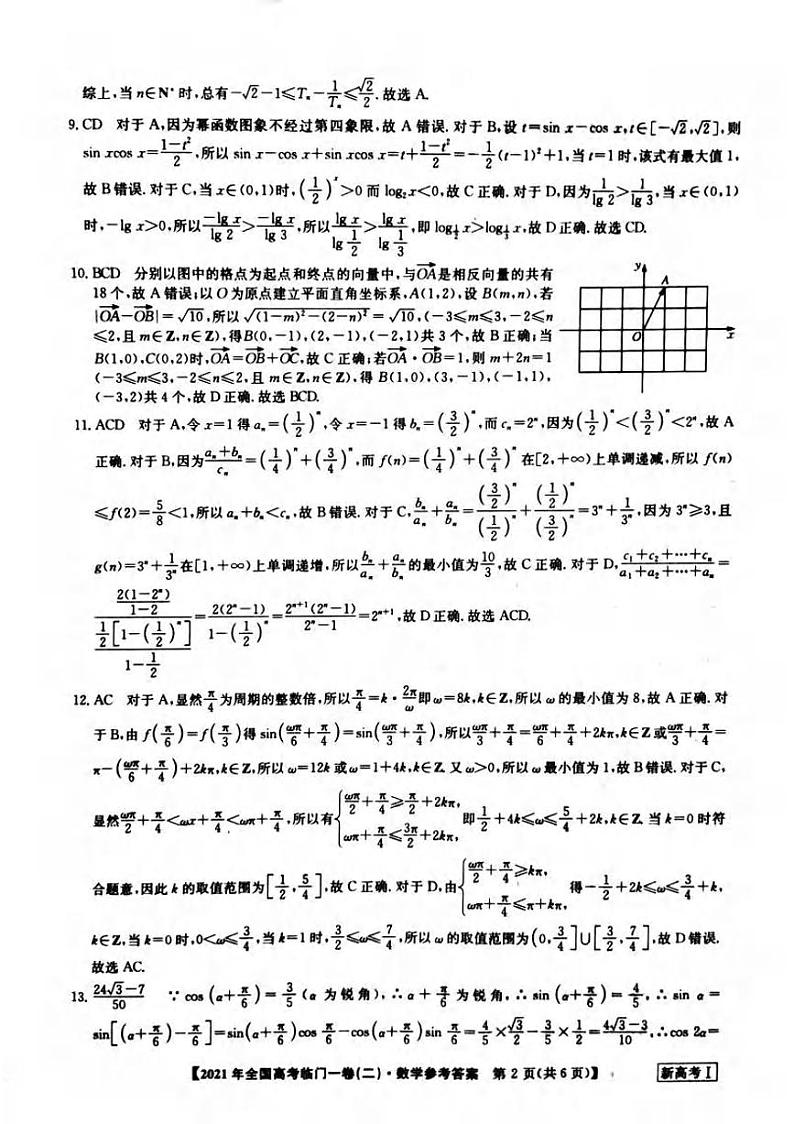 综上,当 n∈N* 时,总有-√2-1≤Tₙ-1/Tₙ≤√2/2.故选 A.
9. CD 对于 A,因为幂函数图象不经过第四象限,故 A 错误.对于 B,设 t=sin x-cos x,t∈[-√2,√2],则
sin xcos x=(1-t²)/2,所以 sin x-cos x+sin xcos x=t+(1-t²)/2=-1/2(t-1)²+1,当 t=1 时,该式有最大值 1,
故 B 错误.对于 C,当 x∈(0,1)时,(1/2)ˣ>0 而 log₂x<0,故 C 正确.对于 D,因为1/lg 2>1/lg 3,当 x∈(0,1)
时,-lg x>0,所以(-lg x)/(lg 2)>(-lg x)/(lg 3),所以(lg x)/(lg 1/2)>(lg x)/(lg 1/3),即 log_{1/2}x>log_{1/3}x,故 D 正确.故选 CD.
10. BCD 分别以图中的格点为起点和终点的向量中,与OA→是相反向量的共有
18 个,故 A 错误;以 O 为原点建立平面直角坐标系,A(1,2),设 B(m,n),若
|OA→-OB→|=√10,所以√((1-m)²-(2-n)²)=√10,(-3≤m≤3,-2≤n
≤2,且 m∈Z,n∈Z),得B(0,-1),(2,-1),(-2,1)共 3 个,故 B 正确;当
B(1,0),C(0,2)时,OA→=OB→+OC→,故 C 正确;若OA→·OB→=1,则 m+2n=1
(-3≤m≤3,-2≤n≤2,且 m∈Z,n∈Z),得 B(1,0),(3,-1),(-1,1),
(-3,2)共 4 个,故 D 正确.故选 BCD.
y
A
O
x
11. ACD 对于 A,令 x=1 得 aₙ=(1/2)ⁿ,令 x=-1 得 bₙ=(3/2)ⁿ,而 cₙ=2ⁿ,因为(1/2)ⁿ<(3/2)ⁿ<2ⁿ,故 A
正确.对于 B,因为(aₙ+bₙ)/cₙ=(1/4)ⁿ+(3/4)ⁿ,而 f(n)=(1/4)ⁿ+(3/4)ⁿ在[2,+∞)上单调递减,所以 f(n)
≤f(2)=5/8<1,所以 aₙ+bₙ<cₙ,故 B 错误.对于 C,bₙ/aₙ+aₙ/bₙ=(3/2)ⁿ/(1/2)ⁿ+(1/2)ⁿ/(3/2)ⁿ=3ⁿ+1/3ⁿ,因为 3ⁿ≥3,且
g(n)=3ⁿ+1/3ⁿ在[1,+∞)上单调递增,所以bₙ/aₙ+aₙ/bₙ的最小值为10/3,故 C 正确.对于 D,(c₁+c₂+⋯+cₙ)/(a₁+a₂+⋯+aₙ)=
(2(1-2ⁿ)/(1-2))/((1/2[1-(1/2)ⁿ])/(1-1/2))=2(2ⁿ-1)/(1-(1/2)ⁿ)=2ⁿ⁺¹(2ⁿ-1)/(2ⁿ-1)=2ⁿ⁺¹,故 D 正确.故选 ACD.
12. AC 对于 A,显然π/4为周期的整数倍,所以π/4=k·2π/ω即ω=8k,k∈Z,所以 ω 的最小值为 8,故 A 正确.对
于 B,由 f(π/6)=f(π/3)得 sin(ωπ/6+π/4)=sin(ωπ/3+π/4),所以ωπ/3+π/4=ωπ/6+π/4+2kπ,k∈Z 或ωπ/3+π/4=
π-(ωπ/6+π/4)+2kπ,k∈Z,所以 ω=12k 或 ω=1+4k,k∈Z.又 ω>0,所以 ω 最小值为 1,故 B 错误.对于 C,
显然ωπ/2+π/4<ωx+π/4<ωπ+π/4,所以有{ωπ/2+π/4≥π/2+2kπ, ωπ+π/4≤3π/2+2kπ, 即1/2+4k≤ω≤5/4+2k,k∈Z.当 k=0 时符
合题意,因此 k 的取值范围为[1/2,5/4],故 C 正确.对于 D,由{ωπ/2+π/4≥kπ, ωπ+π/4≤π+kπ, 得-1/2+2k≤ω≤3/4+k,
k∈Z,当 k=0 时,0<ω≤3/4,当 k=1 时,3/2≤ω≤7/4,所以 ω 的取值范围为(0,3/4]∪[3/2,7/4],故 D 错误.
故选 AC.
13. (24√3-7)/50 ∵cos(α+π/6)=3/5(α 为锐角),∴α+π/6为锐角,∴sin(α+π/6)=4/5,∴sin α=
sin[(α+π/6)-π/6]=sin(α+π/6)cos π/6-cos(α+π/6)sin π/6=4/5×√3/2-3/5×1/2=(4√3-3)/10,∴cos 2α=
【2021 年全国高考临门一卷(二)·数学参考答案 第 2 页(共 6 页)】 新高考Ⅰ